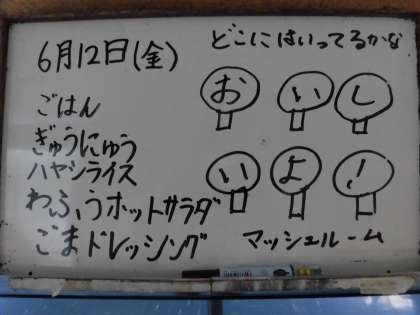 6月12日(金)
ごはん
ぎゅうにゅう
ハヤシライス
わふうホットサラダ
ごまドレッシング
どこにはいってるかな
おいし
いよ!
マッシュルーム